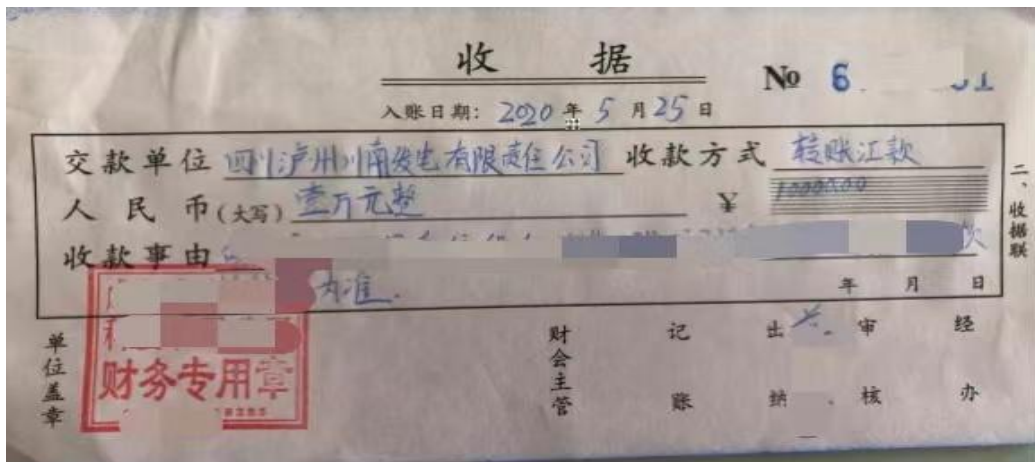 收 据
No 6
入账日期: 2020 年 5 月 25 日
交款单位 四川泸州川南发电有限责任公司 收款方式 转账汇款
人民币(大写) 壹万元整 ¥ 10000.00
收款事由
为准.
年 月 日
二、收据联
单位盖章
财务专用章
财会主管 记账 出纳 审核 经办